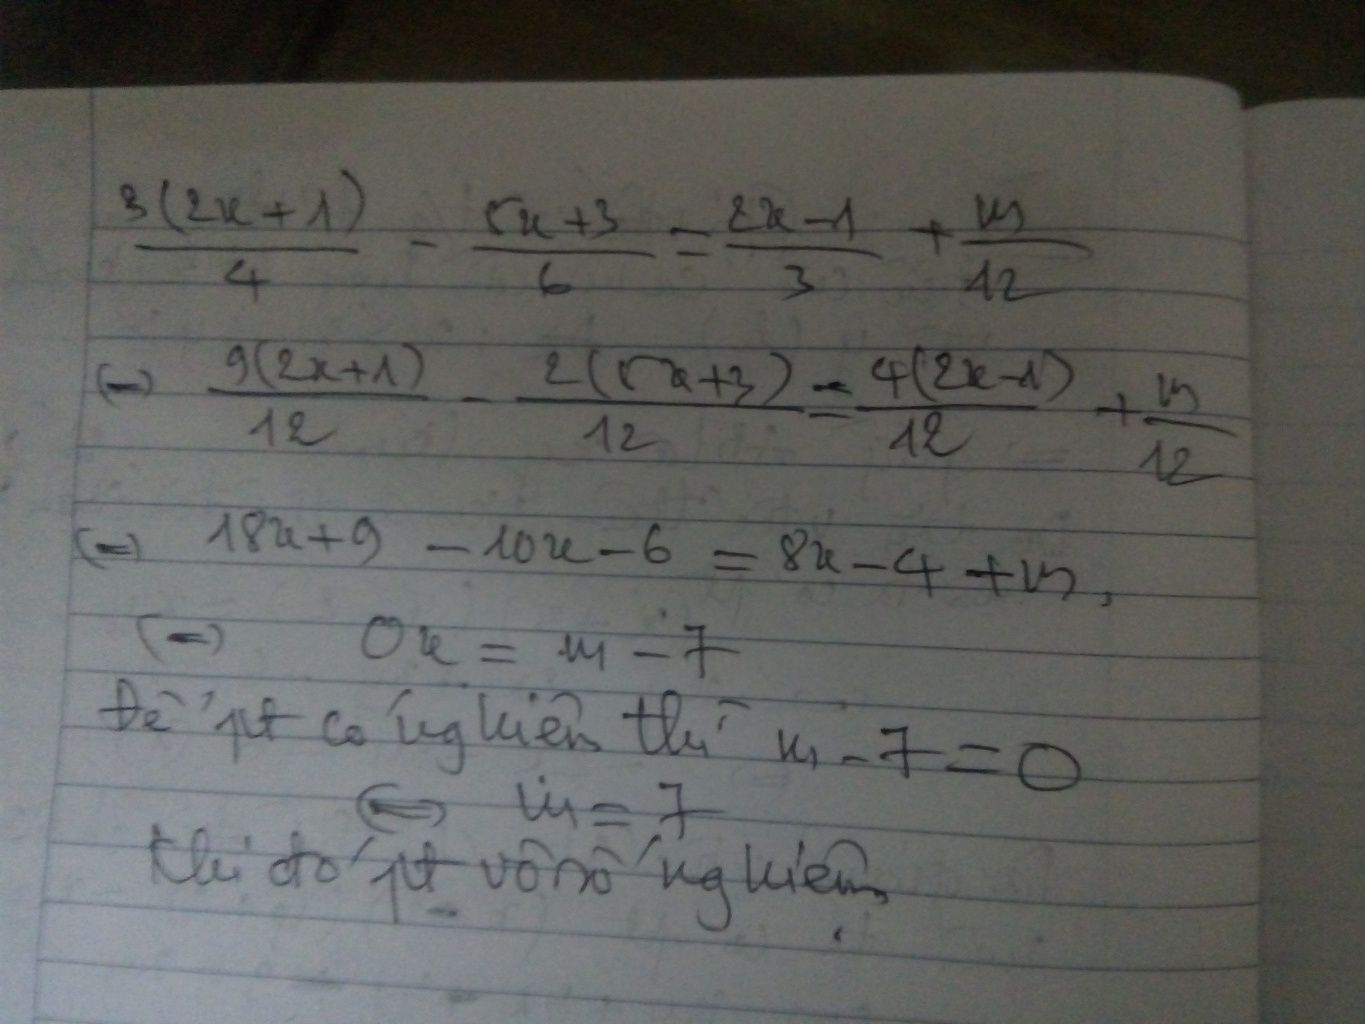 3(2x+1)/4 - 5x+3/6 = 2x-1/3 + m/12
(=) 9(2x+1)/12 - 2(5x+3)/12 = 4(2x-1)/12 + m/12
(=) 18x+9 -10x-6 = 8x-4+m
(=) 0x = m-7
Để pt có nghiệm thì m-7=0
<=> m=7
Khi đó pt vô số nghiệm